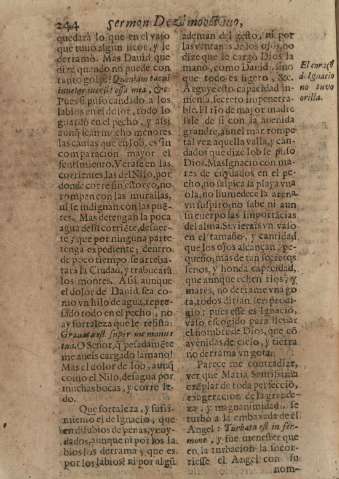 244 Sermon Dezimooctavo,
quedará lo que en el vaso
que tuuo algun licor, y le
derramò. Mas Dauid que
dize quando no puede con
tanto golpe?
Pues si puso candado a los
labios en el dolor, todo lo
guardò en el pecho, y assi
aunq̃ fuera mucho menores
las causas que en Job, es in
comparacion mayor el
sentimiento. Verase en las
corrientes las del Nilo, por
donde corre sin estoruo, no
rompen con las murallas,
ni se indignan con las puẽ
tes. Mas detengan la poca
agua de si corriẽte, de suer-
te, y que por ninguna parte
tenga expediente; dentro
de poco tiempo se arreba-
tará la Ciudad, y trabucará
los montes. Assi aunque
el dolor de Dauid sea co-
mo vn hilo de agua, repre-
sado todo en el pecho, no
ay fortaleza que le resista:
Grauata est super me manus
tua. O Señor, q̃ pesadamẽte
me aueis cargado la mano!
Mas el dolor de Job, aunq̃
como el Nilo, desagua por
muchas bocas, y corre le-
do.
Que fortaleza, y sufri-
miento el de Ignacio, que
en diluuios de penas, y cuy-
dados, aunque ni por los la-
bios los derrama y que es
por los labios? ni por algũ
ademan del gesto, ni por
las ventanas de los ojos, no
dize que le cargó Dios la
mano, como Dauid, sino
que todo es ligero, &c.
Arguye esto capacidad in-
mensa, secreto impenetra-
ble. El rio de mayor madre
sale de si con la auenida
grande, aun el mar rompe
tal vez aquella valla, y can-
dados que dize Iob le puso
Dios. Mas Ignacio con ma-
res de cuydados en el pe-
cho, no salpica la playa vna
ola, no humedece la arena
vn suspiro, no sabe ni aun
su cuerpo las importãcias
del alma. Si vierais vn vaso
en el tamaño, y cantidad,
que los ojos alcançan, pe-
queño, mas de tan secretos
senos, y honda capacidad,
que aunque echen rios, y
mares, no derrame vna go-
ta, todos dirian ser prodi-
gio; pues esse es Ignacio,
vaso escogido para lleuar
el nombre de Dios, que cõ
auenidas de cielo, y tierra
no derrama vn gota.
Parece me contradize,
ver que Maria Santissima
exẽplar de toda perfecciõ,
exageracion de la grande-
za, y magnanimidad, se
turbò a la embaxada de el
Angel: Turbata est in ser-
mone, y fue menester que
en la turbacion la socor-
riesse el Angel con su
nom-
El coraçõ
d Ignacio
no tuvo
orilla.